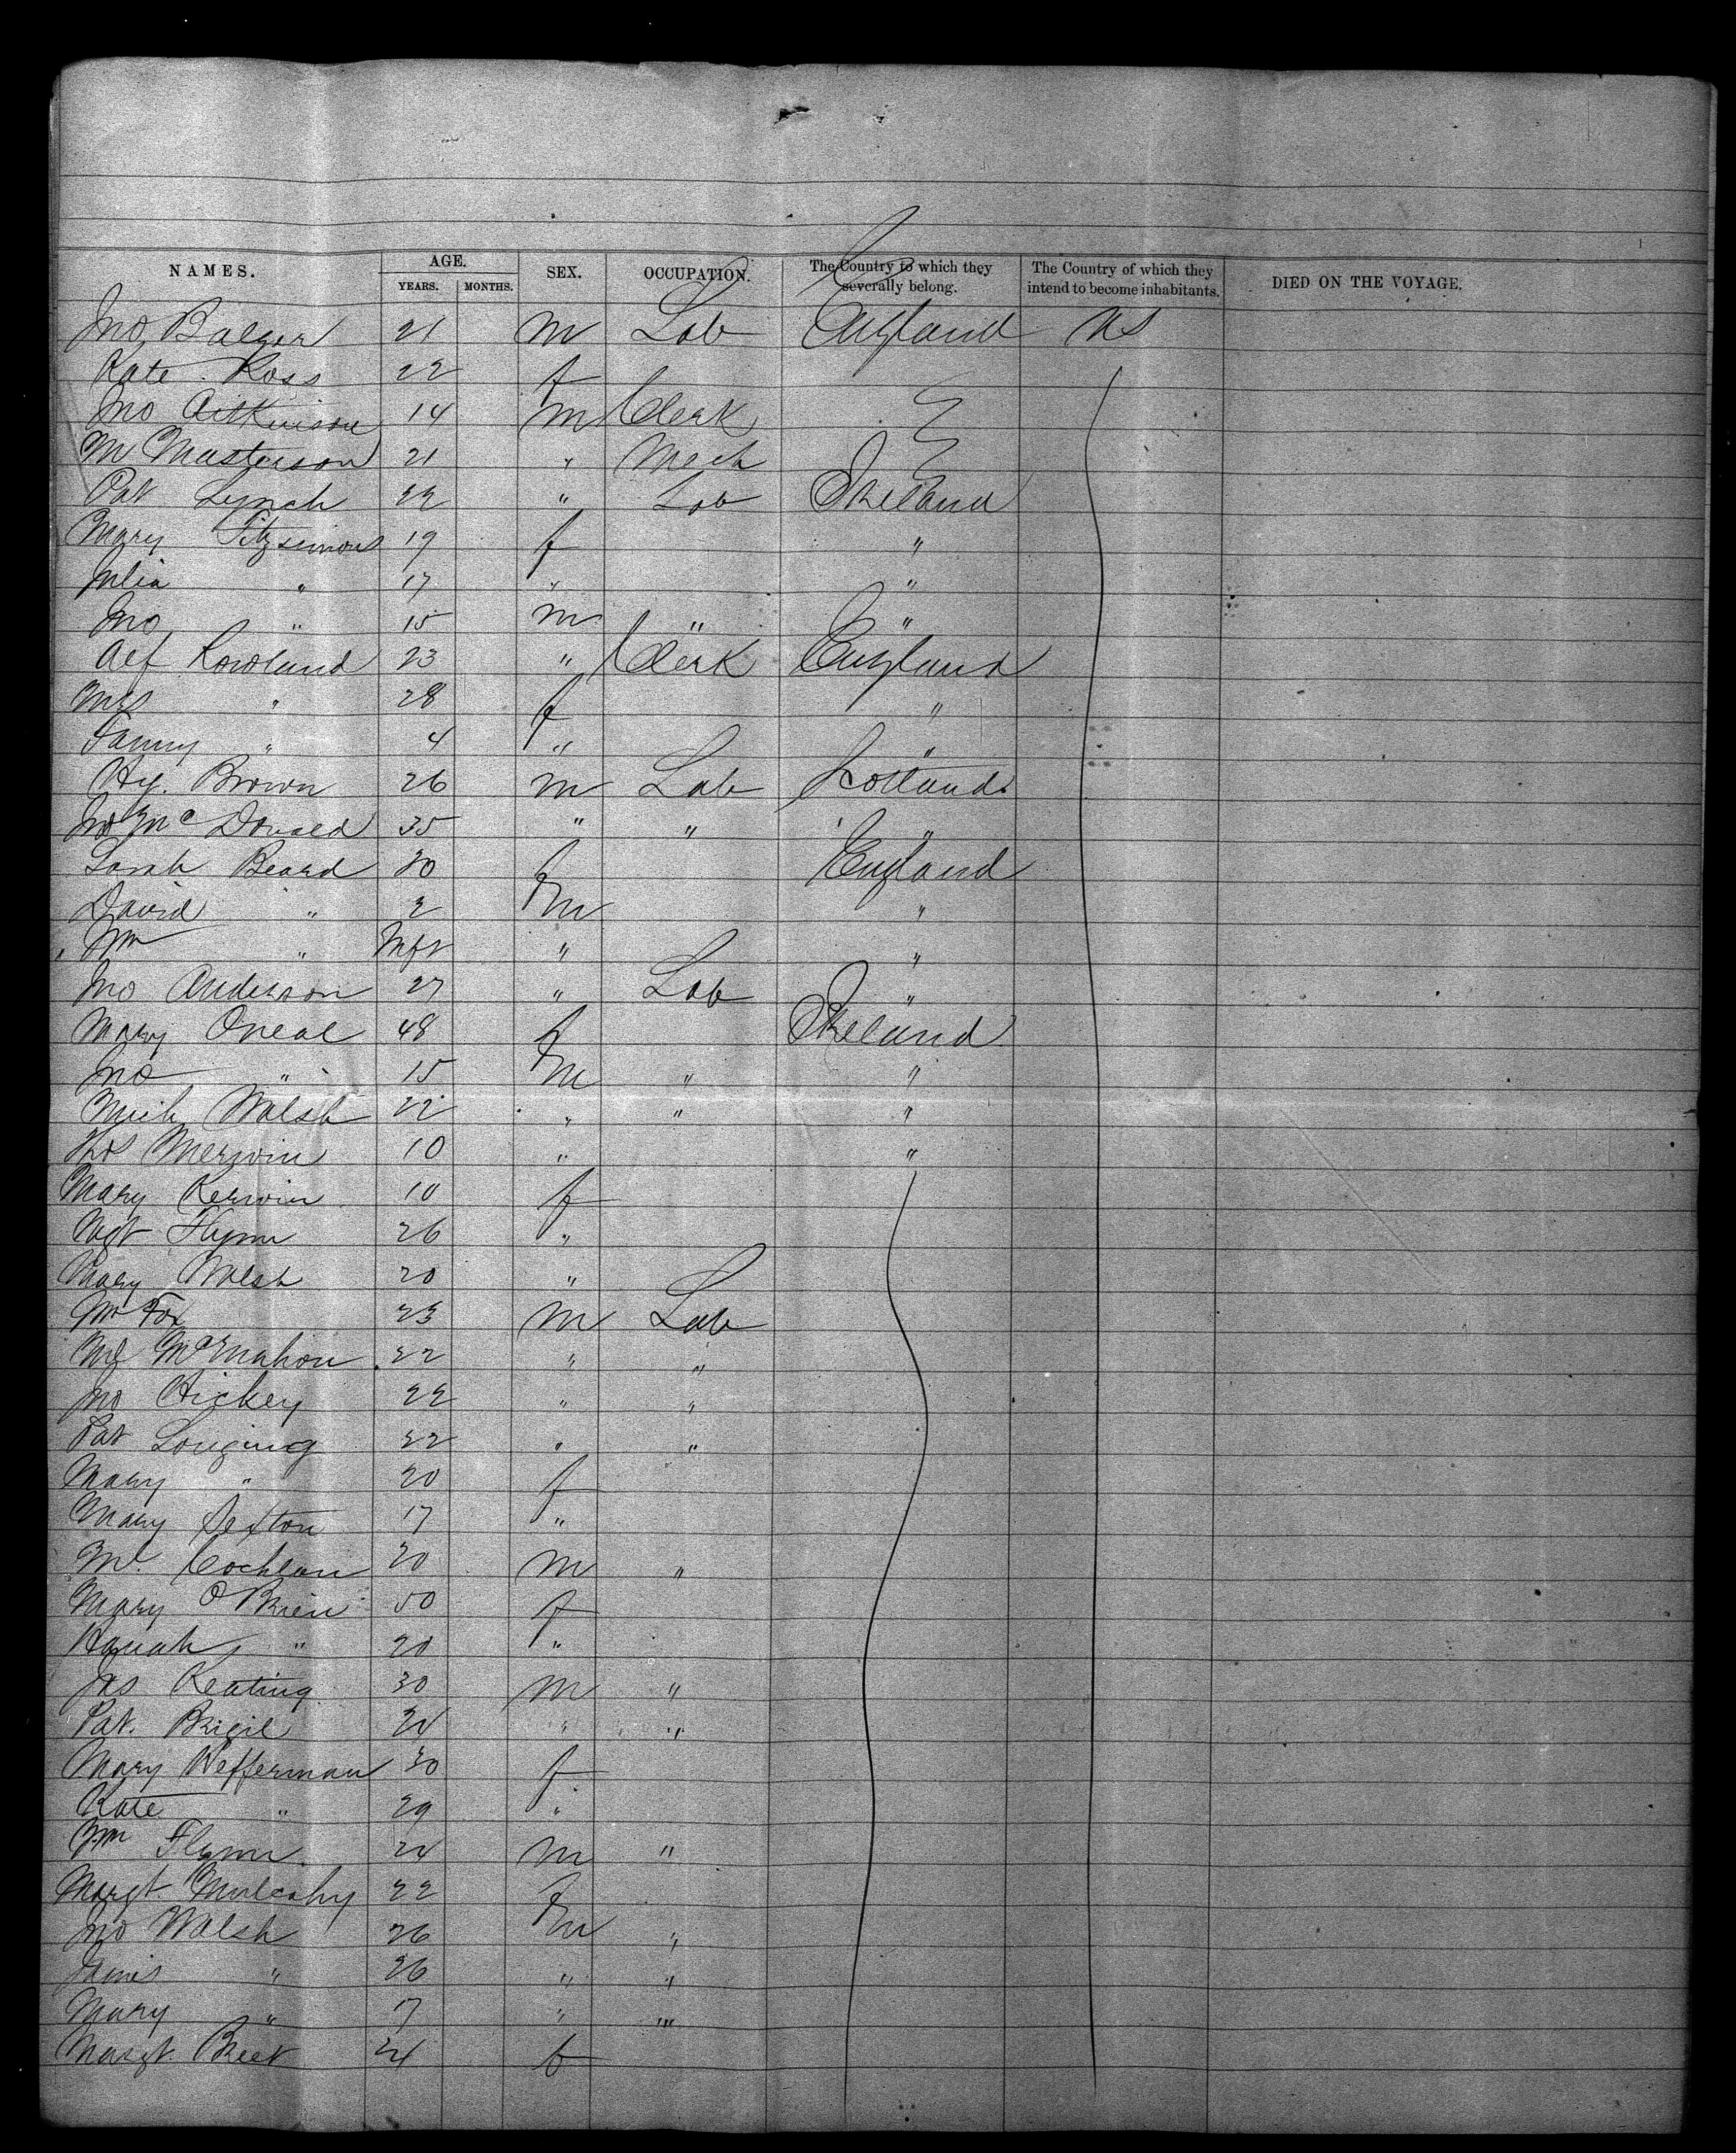 NAMES. AGE. SEX. OCCUPATION. The Country to which they severally belong. The Country of which they intend to become inhabitants. DIED ON THE VOYAGE.
YEARS. MONTHS.
Jno Balger 21 m Lab England US
Kate Ross 22 f
Jno Aitkinson 14 m Clerk
M Masterson 21 " Mech
Pat Lynch 22 " Lab Ireland
Mary Fitzsimons 19 f "
Julia " 17 " "
Jno " 15 m " "
Alf Rowland 23 " Clerk England
Mrs " 28 f "
Fanny " 4 " "
Hy. Brown 26 m Lab Scotland
Jno McDonald 35 " " "
Sarah Beard 30 f England
David " 2 m "
Wm " Inft " "
Jno Anderson 27 " Lab "
Mary Oneal 48 f Ireland
Jno " 15 m " "
Mich Walsh 22 " " "
Thos Merwin 10 " "
Mary Kerwin 10 f
Mgt Flynn 26 "
Mary Walsh 20 "
Wm Fox 23 m Lab
Ml McMahon 22 " "
Jno Hickey 22 " "
Pat Longing 22 " "
Mary " 20 f
Mary Sexton 17 "
Ml. Cochlan 20 m "
Mary O'Brien 50 f
Hanah " 20 "
Jas Keating 30 m "
Pat. 24 " "
Mary Hefferman 30 f
Kate " 29 "
Wm Flynn 24 m "
Margt. Mulcahy 22 f
Jno Walsh 26 m "
James " 26 " "
Mary " 17 " "
Margt. 24 f